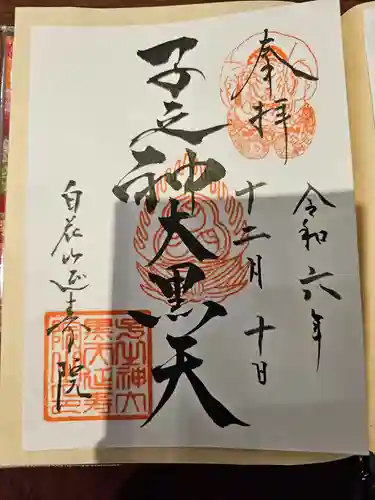 奉拝
令和六年
十二月十日
子之神大黒天
白花山延寿院